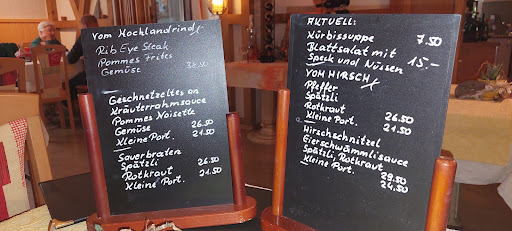 Vom Hochlandrind
Rib Eye Steak
Pommes Frites
Gemüse 38.50
Geschnetzeltes an
Kräuterrahmsauce
Pommes Noisette
Gemüse 26.50
Kleine Port. 21.50
Sauerbraten
Spätzli 26.50
Rotkraut 21.50
Kleine Port.
AKTUELL:
Kürbissuppe 7.50
Blattsalat mit
Speck und Nüssen 15.-
VOM HIRSCH
Pfeffer
Spätzli
Rotkraut 26.50
Kleine Port. 21.50
Hirschschnitzel
Eierschwämmlisauce
Spätzli, Rotkraut 29.50
Kleine Port. 24.50